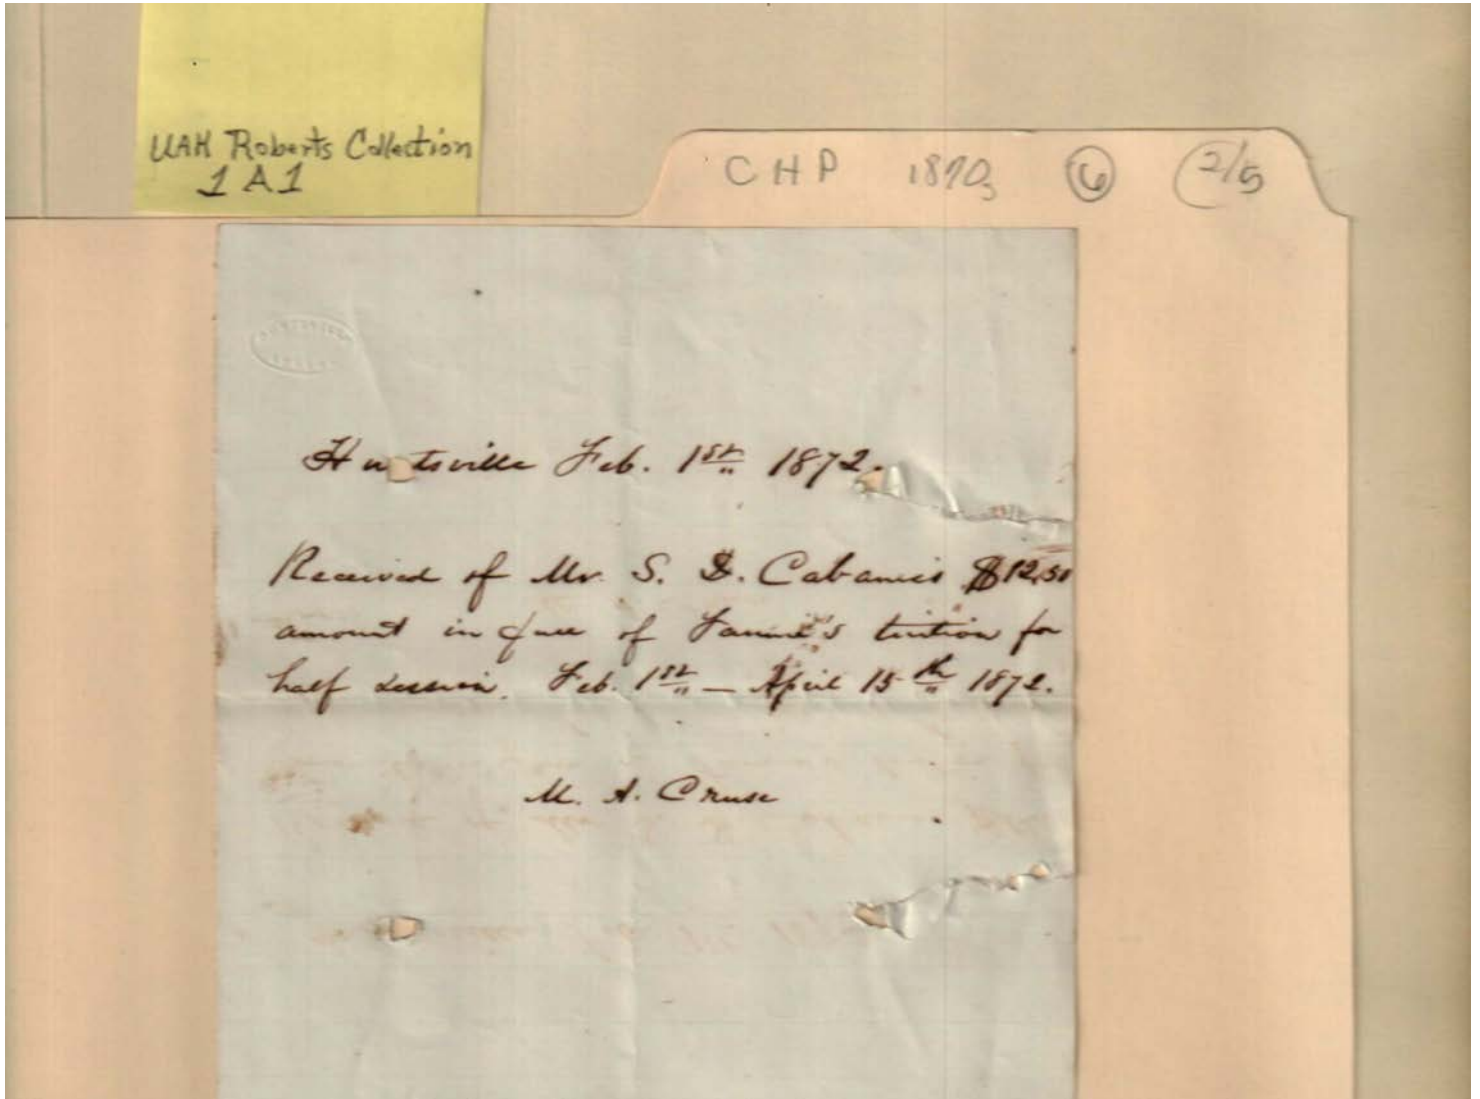 UAH Roberts Collection
1 A 1
CHP 1870s 6 2/5
Huntsville Feb. 1st 1872.
Received of Mr. S. D. Cabaniss $12,50
amount in full of Fannie's tuition for
half session. Feb. 1st — April 15th 1872.
M. A. Cruse